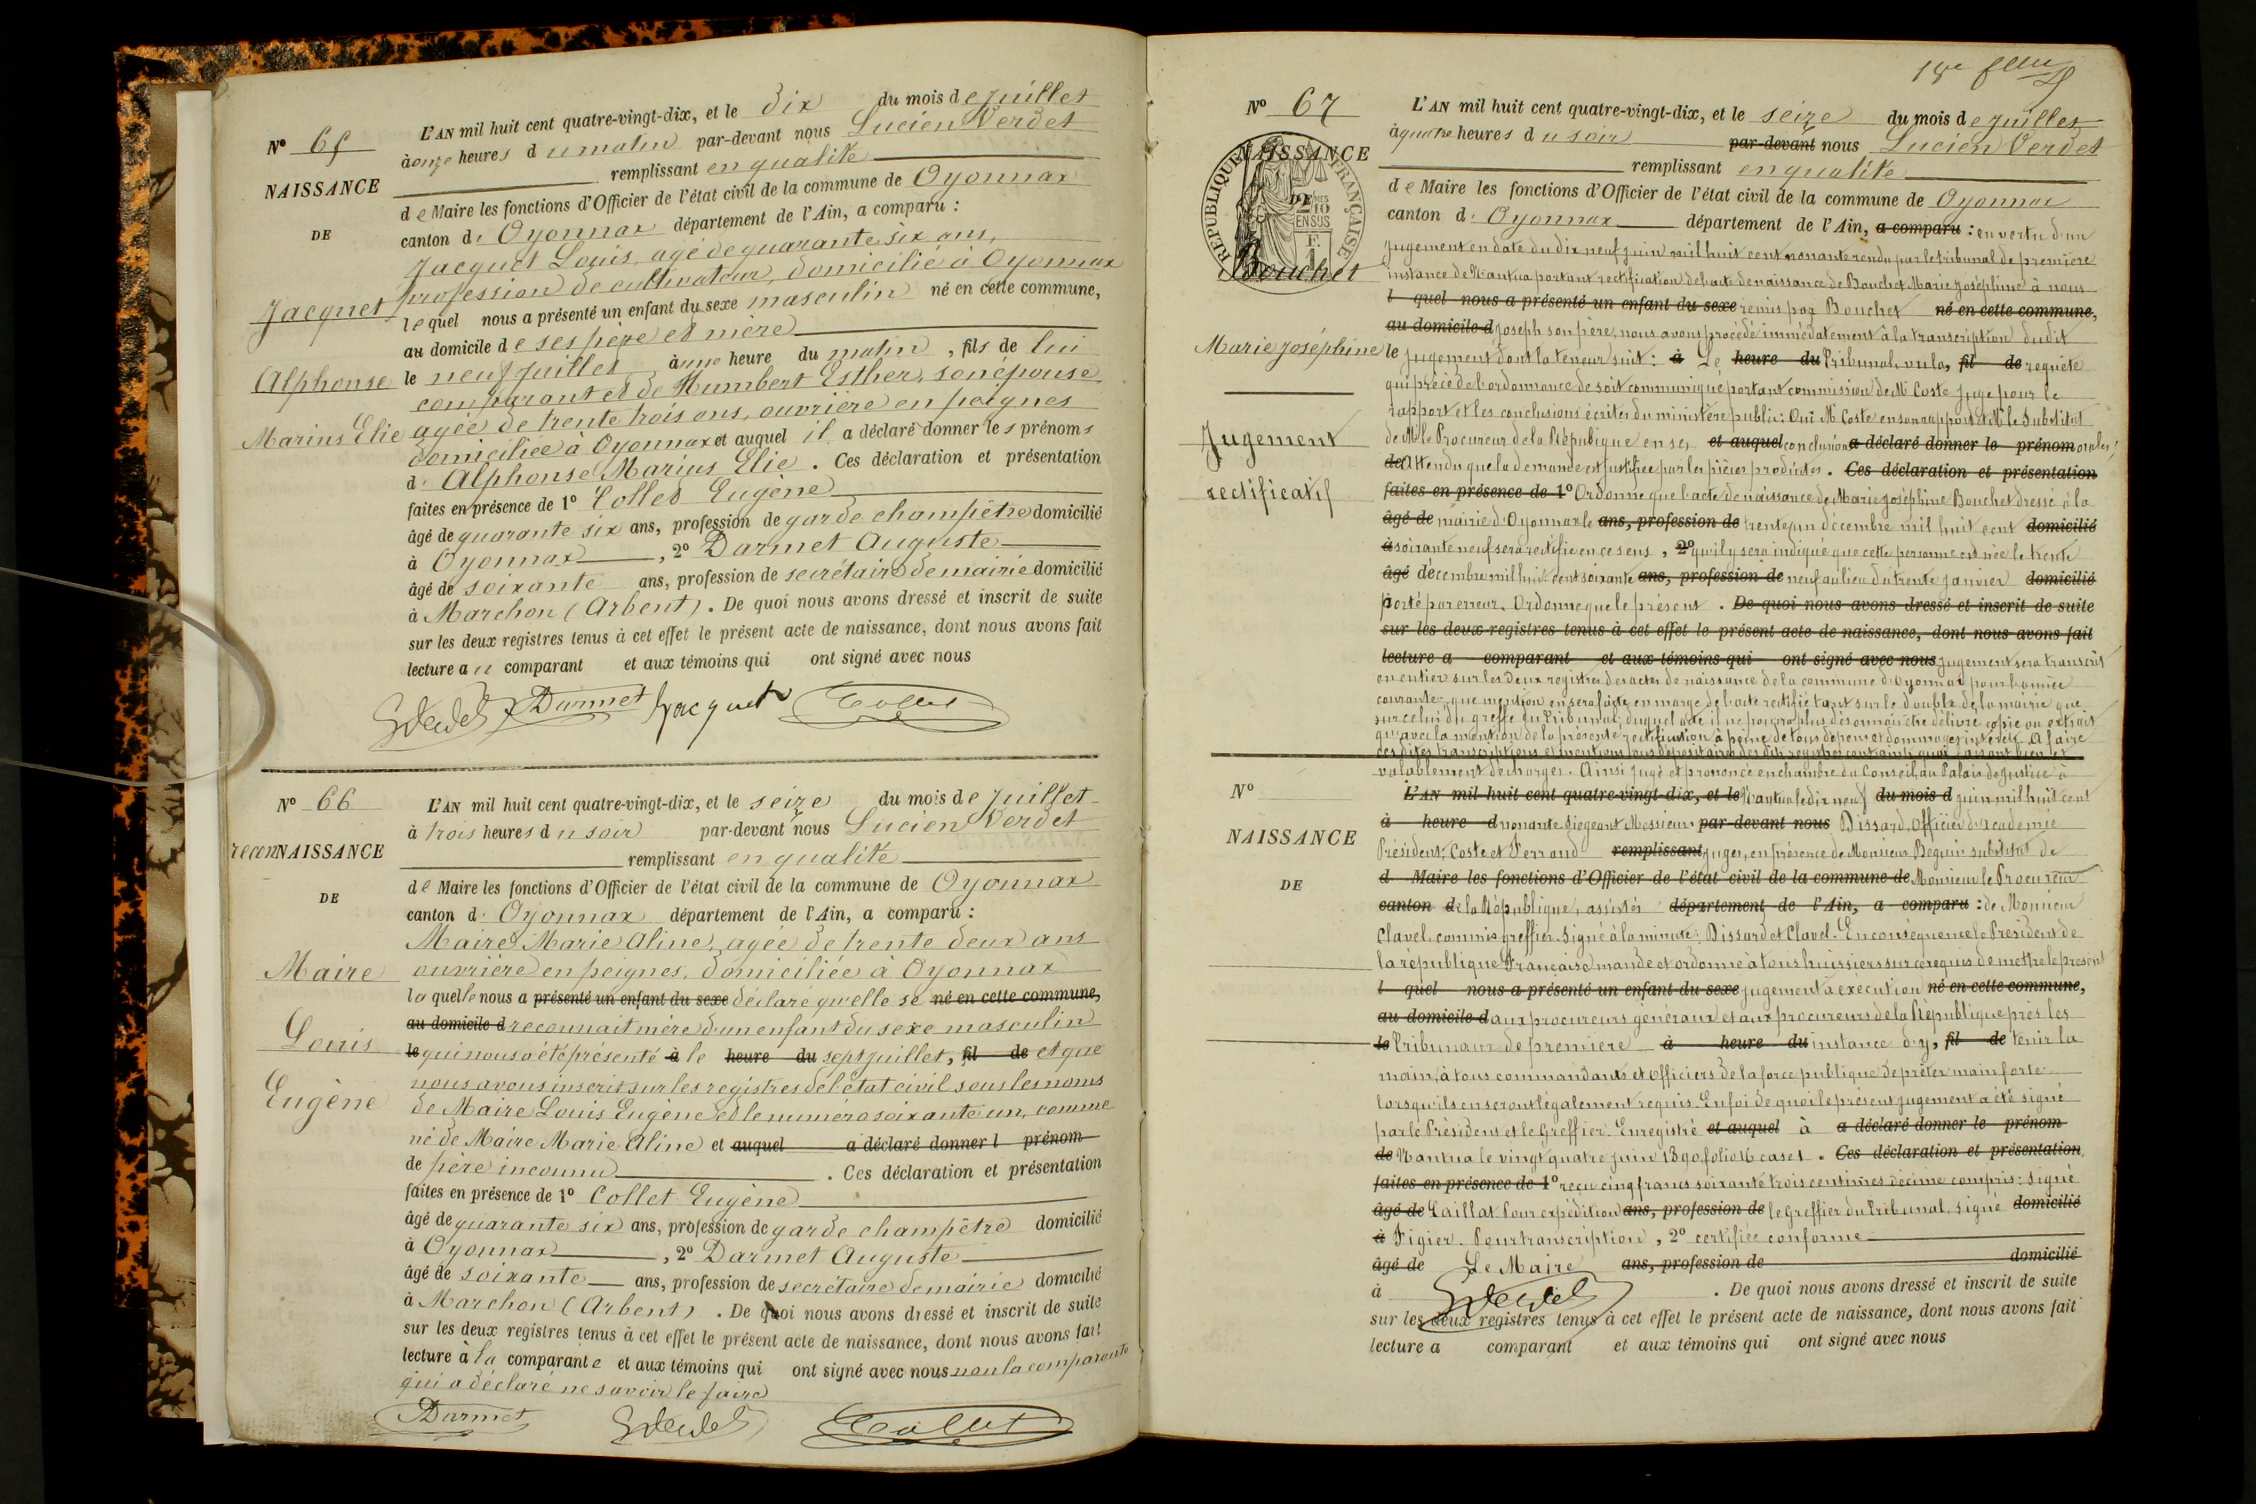 Nº 65
NAISSANCE
DE
Jacquet
Alphonse
Marius Elie
L'AN mil huit cent quatre-vingt-dix, et le dix du mois de juillet
à onze heures du matin par-devant nous Lucien Verdet
remplissant en qualité
de Maire les fonctions d'Officier de l'état civil de la commune de Oyonnax
canton d' Oyonnax département de l'Ain, a comparu :
Jacquet Louis, agé de quarante six ans,
profession de cultivateur, domicilié à Oyonnax
lequel nous a présenté un enfant du sexe masculin né en cette commune,
au domicile de ses père et mère
le neuf juillet à une heure du matin, fils de lui
comparant et de Humbert Esther, son épouse
agée de trente trois ans, ouvrière en peignes
domiciliée à Oyonnax et auquel il a déclaré donner les prénoms
d' Alphonse Marius Elie. Ces déclaration et présentation
faites en présence de 1º Collet Eugène
âgé de quarante six ans, profession de garde champêtre domicilié
à Oyonnax, 2º Darmet Auguste
âgé de soixante ans, profession de secrétaire de mairie domicilié
à Marchon (Arbent). De quoi nous avons dressé et inscrit de suite
sur les deux registres tenus à cet effet le présent acte de naissance, dont nous avons fait
lecture au comparant et aux témoins qui ont signé avec nous
Verdet Darmet Jacquet Collet
Nº 66
recon NAISSANCE
DE
Maire
Louis
Eugène
L'AN mil huit cent quatre-vingt-dix, et le seize du mois de juillet
à trois heures du soir par-devant nous Lucien Verdet
remplissant en qualité
de Maire les fonctions d'Officier de l'état civil de la commune de Oyonnax
canton d' Oyonnax département de l'Ain, a comparu :
Maire Marie Aline, agée de trente deux ans
ouvrière en peignes, domiciliée à Oyonnax
laquelle nous a présenté un enfant du sexe déclaré qu'elle se né en cette commune,
au domicile d reconnait mère d'un enfant du sexe masculin
le qui nous a été présenté à le heure du sept juillet, fil de et que
nous avons inscrit sur les registres de l'état civil sous les noms
de Maire Louis Eugène et le numéro soixante un, comme
né de Maire Marie Aline et auquel a déclaré donner l prénom
de père inconnu. Ces déclaration et présentation
faites en présence de 1º Collet Eugène
âgé de quarante six ans, profession de garde champêtre domicilié
à Oyonnax, 2º Darmet Auguste
âgé de soixante ans, profession de secrétaire de mairie domicilié
à Marchon (Arbent). De quoi nous avons dressé et inscrit de suite
sur les deux registres tenus à cet effet le présent acte de naissance, dont nous avons fait
lecture à la comparante et aux témoins qui ont signé avec nous non la comparante
qui a déclaré ne savoir le faire
Darmet Verdet Collet
18e
Nº 67
NAISSANCE
DE
RÉPUBLIQUE FRANÇAISE
2/10 EN SUS
Bouchet
Marie Joséphine
Jugement
rectificatif
L'AN mil huit cent quatre-vingt-dix, et le seize du mois de juillet
à quatre heures du soir par-devant nous Lucien Verdet
remplissant en qualité
de Maire les fonctions d'Officier de l'état civil de la commune de Oyonnax
canton d' Oyonnax département de l'Ain, a comparu : en vertu d'un
jugement en date du dix neuf juin mil huit cent nonante rendu par le tribunal de première
instance de Nantua portant rectification de l'acte de naissance de Bouchet Marie Joséphine à nous
l quel nous a présenté un enfant du sexe remis par Bouchet né en cette commune,
au domicile d Joseph son père, nous avons procédé immédiatement à la transcription dudit
le jugement dont la teneur suit : à Le heure du Tribunal, vu la, fil de requête
qui précède l'ordonnance de soit communiqué portant commission de Mr Coste Juge pour le
rapport et les conclusions écrites du ministère public : Ouï Mr Coste en son rapport et Mr le Substitut
de Mr le Procureur de la République en ses et auquel conclusions a déclaré donner le prénom orales ;
de Attendu que la demande est justifiée par les pièces produites. Ces déclaration et présentation
faites en présence de 1º Ordonne que l'acte de naissance de Marie Joséphine Bouchet dressé à la
âgé de mairie d'Oyonnax le ans, profession de trente un décembre mil huit cent domicilié
à soixante neuf sera rectifié en ce sens, 2º qu'il y sera indiqué que cette personne est née le trente
âgé décembre mil huit cent soixante ans, profession de neuf au lieu du trente janvier domicilié
porté par erreur. Ordonne que le présent. De quoi nous avons dressé et inscrit de suite
sur les deux registres tenus à cet effet le présent acte de naissance, dont nous avons fait
lecture a comparant et aux témoins qui ont signé avec nous jugement sera transcrit
en entier sur les deux registres des actes de naissance de la commune d'Oyonnax pour l'année
courante, que mention en sera faite en marge de l'acte rectifié tant sur le double de la mairie que
sur celui du greffe du Tribunal, duquel acte il ne pourra plus désormais être délivré copie ou extrait
qu'avec la mention de la présente rectification à peine de tous dépens et dommages intérêts. A faire
ces dites transcriptions et mentions tous dépositaires des dits registres contraints quoi faisant bien et
valablement déchargés. Ainsi jugé et prononcé en chambre du Conseil, au Palais de Justice à
Nº
NAISSANCE
DE
L'AN mil huit cent quatre-vingt-dix, et le Nantua le dix neuf du mois d juin mil huit cent
à heure d nonante. Siégeant Messieurs par-devant nous Dissard, Officier d'académie
Président, Coste et Ferrand remplissant juges, en présence de Monsieur Béguin substitut de
d Maire les fonctions d'Officier de l'état civil de la commune de Monsieur le Procureur
canton de la République, assistés département de l'Ain, a comparu : de Monsieur
Clavel, commis greffier. Signé à la minute : Dissard et Clavel. En conséquence le Président de
la république Française mande et ordonne à tous huissiers sur ce requis de mettre le présent
l quel nous a présenté un enfant du sexe jugement à exécution né en cette commune,
au domicile d aux procureurs généraux et aux procureurs de la République près les
le Tribunaux de première à heure du instance d'y, fil de tenir la
main, à tous commandants et officiers de la force publique de prêter main forte
lorsqu'ils en seront légalement requis. En foi de quoi le présent jugement a été signé
par le Président et le Greffier. Enregistré et auquel à a déclaré donner le prénom
de Nantua le vingt quatre juin 1890, folio 16 case 1. Ces déclaration et présentation
faites en présence de 1º reçu cinq francs soixante trois centimes décime compris : Signé
âgé de Caillat Pour expédition ans, profession de le Greffier du Tribunal, Signé domicilié
à Figier. Pour transcription, 2º certifiée conforme
âgé de Le Maire ans, profession de domicilié
à Verdet. De quoi nous avons dressé et inscrit de suite
sur les deux registres tenus à cet effet le présent acte de naissance, dont nous avons fait
lecture a comparant et aux témoins qui ont signé avec nous